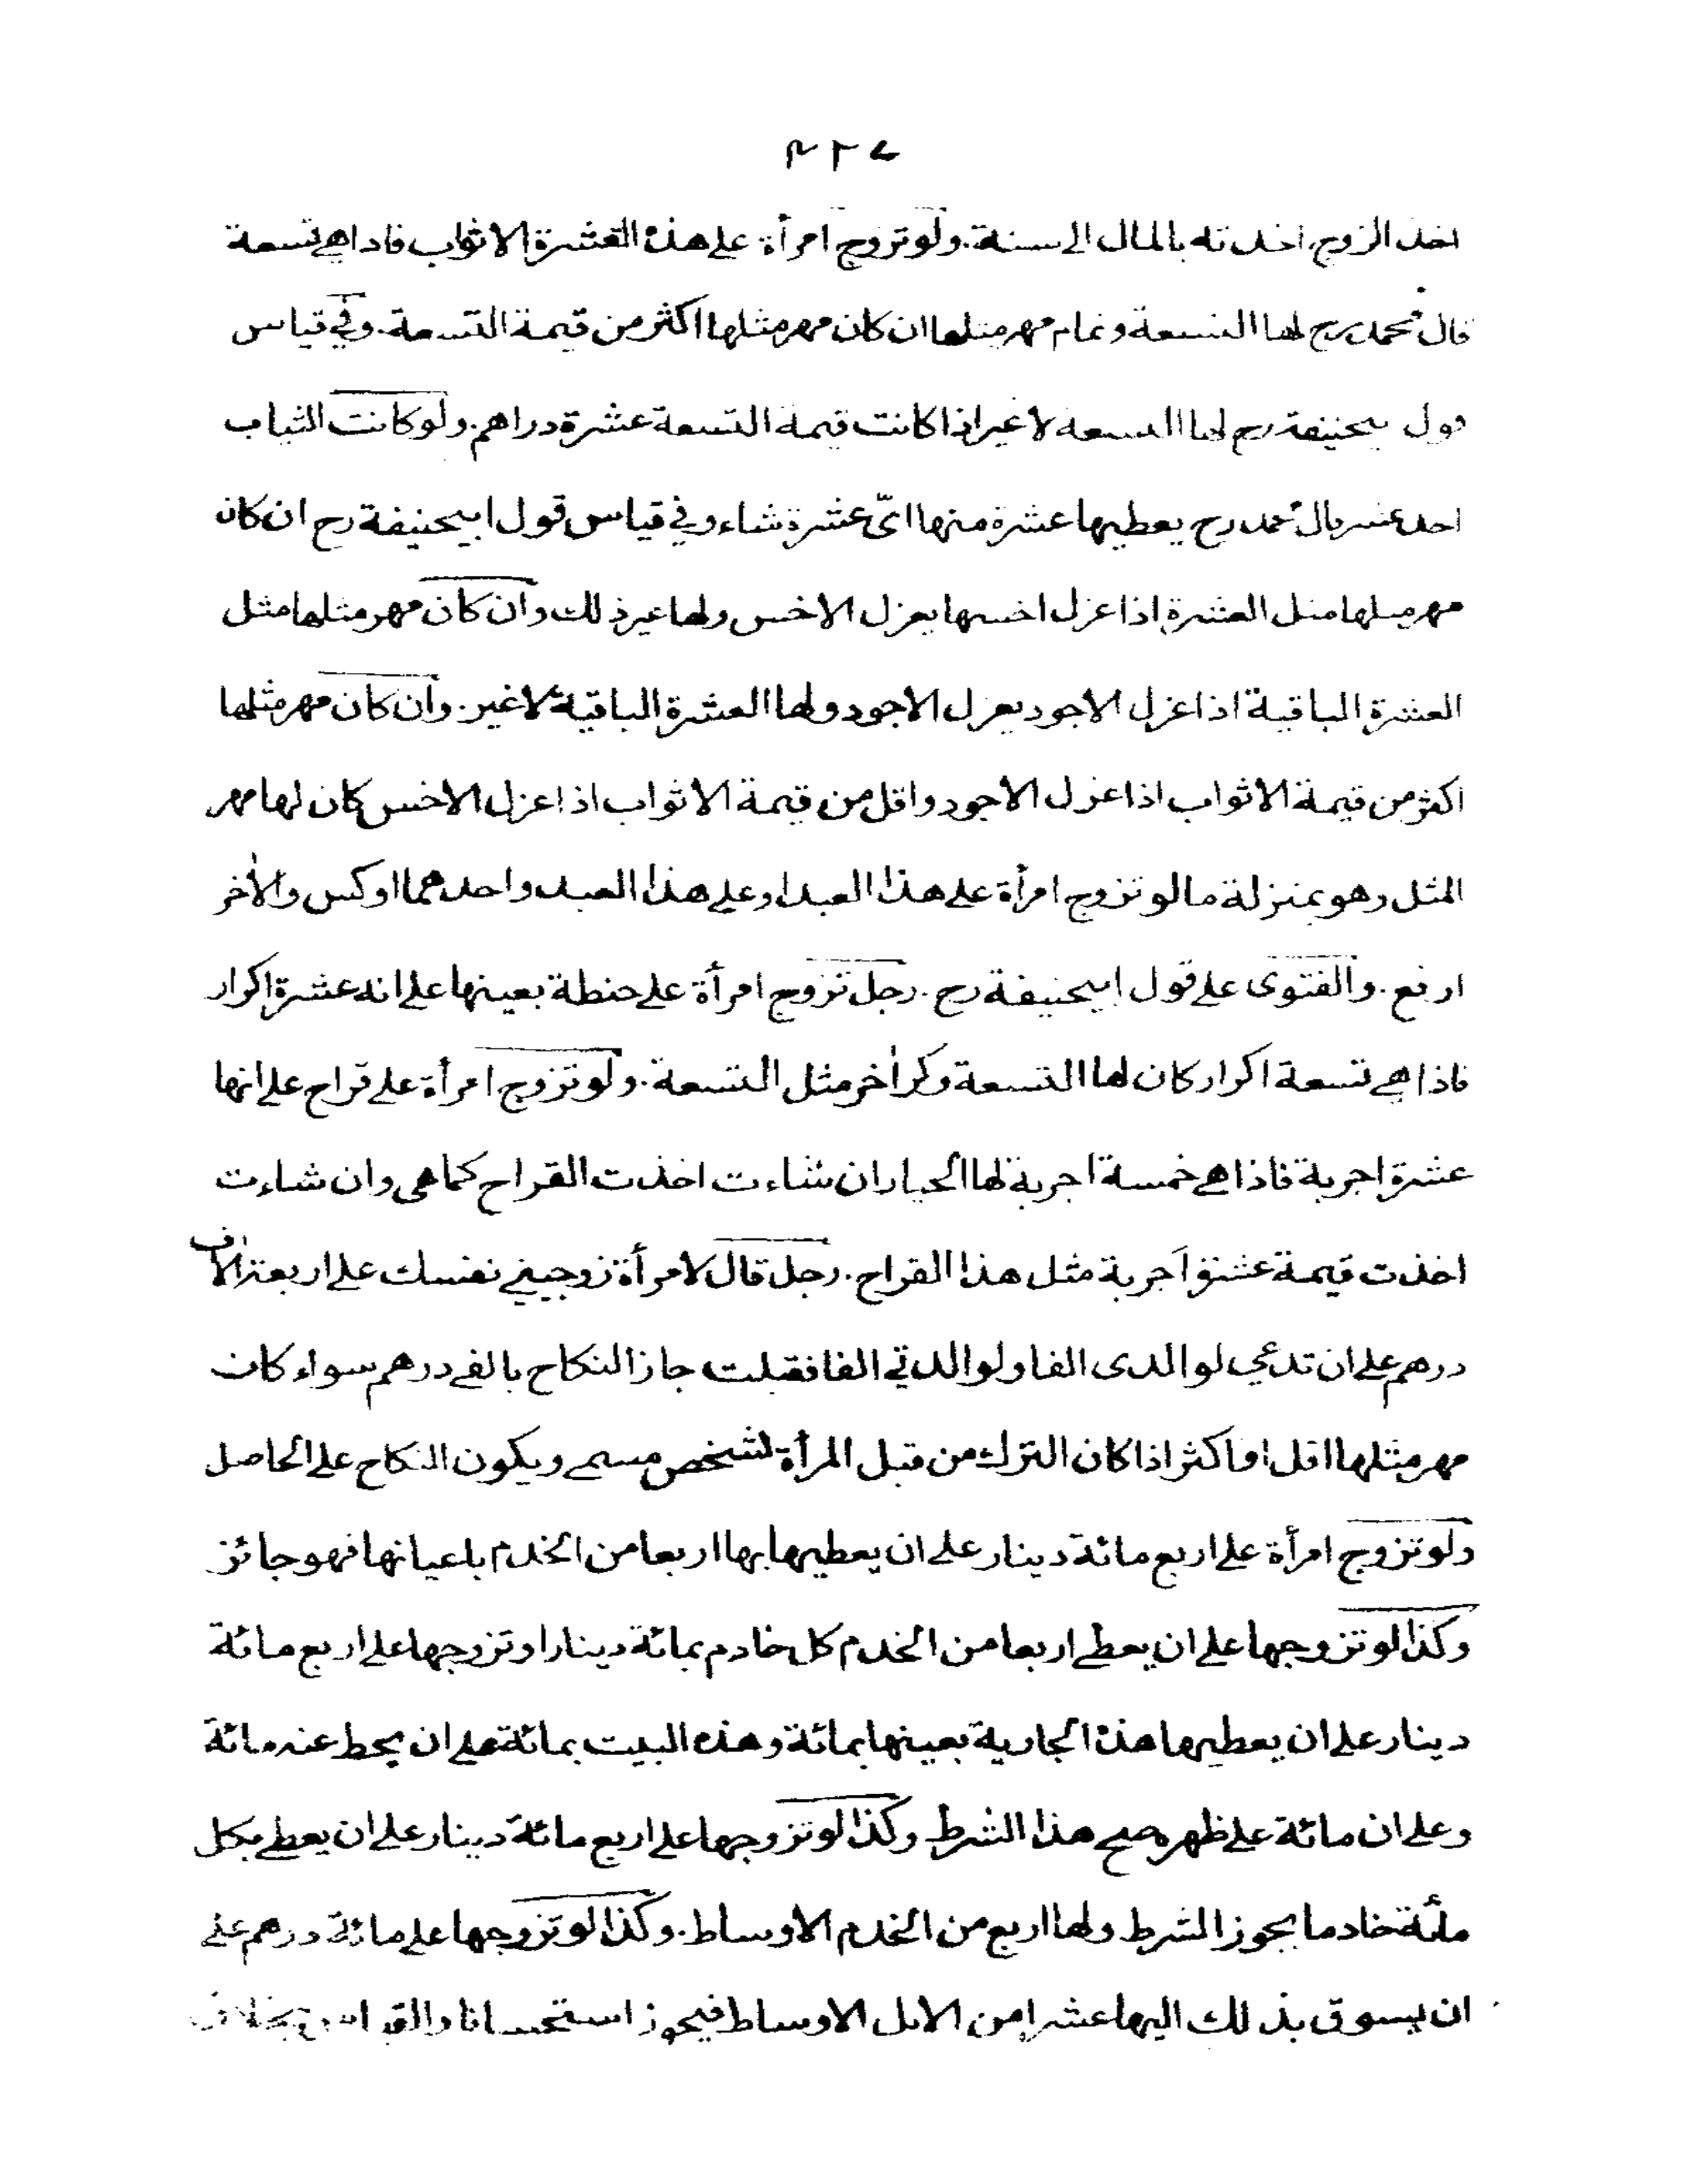 ٤٢٧
اخذ الزوج اخذته بالمال الى سنة. ولو تزوج امرأة على هذه العشرة الاثواب فاذا هى تسعة
قال محمد رح لها التسعة وتمام مهر مثلها ان كان مهر مثلها اكثر من قيمة التسعة. وفى قياس
قول ابيحنيفة رح لها التسعة لا غير اذا كانت قيمة التسعة عشرة دراهم. ولو كانت الثياب
احد عشر قال محمد رح يعطيها عشرة منها اىّ عشرة شاء وفى قياس قول ابيحنيفة رح ان كان
مهر مثلها مثل العشرة اذا عزل اخسها يعزل الاخس ولها غير ذلك وان كان مهر مثلها مثل
العشرة الباقية اذا عزل الاجود يعزل الاجود ولها العشرة الباقية لا غير. وان كان مهر مثلها
اكثر من قيمة الاثواب اذا عزل الاجود واقل من قيمة الاثواب اذا عزل الاخس كان لها مهر
المثل وهو بمنزلة ما لو تزوج امرأة على هذا العبد او على هذا العبد واحدهما اوكس والأخر
ارفع. والفتوى على قول ابيحنيفة رح. رجل تزوج امرأة على حنطة بعينها على انه عشرة اكرار
فاذا هى تسعة اكرار كان لها التسعة وكر أخر مثل التسعة. ولو تزوج امرأة على قراح على انها
عشرة اجربة فاذا هى خمسة اجربة لها الخيار ان شاءت اخذت القراح كما هى وان شاءت
اخذت قيمة عشرة اجربة مثل هذا القراح. رجل قال لامرأة زوجينى نفسك على اربعة الاف
درهم على ان تدعى لوالدى الفا ولوالدتى الفا فقبلت جاز النكاح بالفى درهم سواء كان
مهر مثلها اقل او اكثر اذا كان الترك من قبل المرأة لشخص مسمى ويكون النكاح على الحاصل
ولو تزوج امرأة على اربع مائة دينار على ان يعطيها بها اربعا من الخدم باعيانها فهو جائز
وكذا لو تزوجها على ان يعطى اربعا من الخدم كل خادم بمائة دينار او تزوجها على اربع مائة
دينار على ان يعطيها هذه الجارية بعينها بمائة وهذه البيت بمائة على ان يحط عنه مائة
وعلى ان مائة على ظهره صح هذا الشرط وكذا لو تزوجها على اربع مائة دينار على ان يعطى بكل
مائة خادما يجوز الشرط ولها اربع من الخدم الاوساط. وكذا لو تزوجها على مائة درهم على
ان يسوق بذلك اليها عشرا من الابل الاوساط فيجوز استحسانا